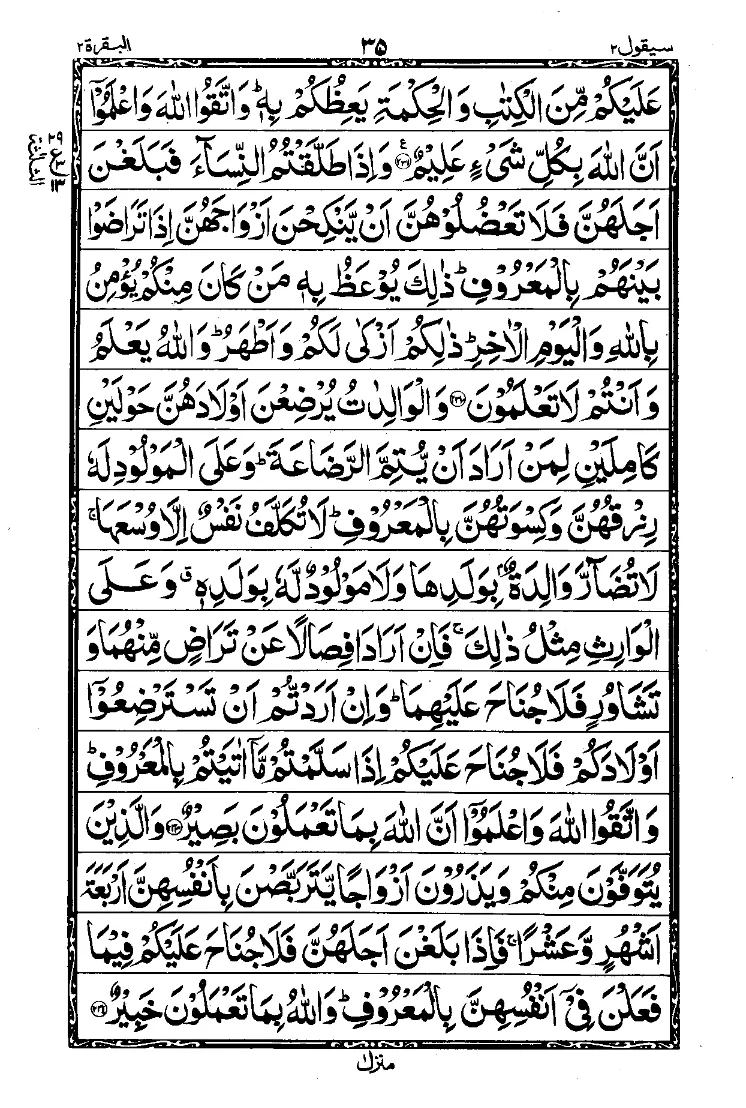 سیقول۲ ۳۵ البقرۃ۲
عَلَيْكُمْ مِّنَ الْكِتٰبِ وَالْحِكْمَةِ يَعِظُكُمْ بِهٖ ؕ وَاتَّقُوا اللّٰهَ وَاعْلَمُوْۤا
اَنَّ اللّٰهَ بِكُلِّ شَیْءٍ عَلِيْمٌ ﴿۲۳۱﴾ ع وَاِذَا طَلَّقْتُمُ النِّسَآءَ فَبَلَغْنَ
اَجَلَهُنَّ فَلَا تَعْضُلُوْهُنَّ اَنْ يَّنْكِحْنَ اَزْوَاجَهُنَّ اِذَا تَرَاضَوْا
بَيْنَهُمْ بِالْمَعْرُوْفِ ؕ ذٰلِكَ يُوْعَظُ بِهٖ مَنْ كَانَ مِنْكُمْ يُؤْمِنُ
بِاللّٰهِ وَالْيَوْمِ الْاٰخِرِ ؕ ذٰلِكُمْ اَزْكٰى لَكُمْ وَاَطْهَرُ ؕ وَاللّٰهُ يَعْلَمُ
وَاَنْتُمْ لَا تَعْلَمُوْنَ ﴿۲۳۲﴾ وَالْوَالِدٰتُ يُرْضِعْنَ اَوْلَادَهُنَّ حَوْلَيْنِ
كَامِلَيْنِ لِمَنْ اَرَادَ اَنْ يُّتِمَّ الرَّضَاعَةَ ؕ وَعَلَى الْمَوْلُوْدِ لَهٗ
رِزْقُهُنَّ وَكِسْوَتُهُنَّ بِالْمَعْرُوْفِ ؕ لَا تُكَلَّفُ نَفْسٌ اِلَّا وُسْعَهَا ۚ
لَا تُضَآرَّ وَالِدَةٌۢ بِوَلَدِهَا وَلَا مَوْلُوْدٌ لَّهٗ بِوَلَدِهٖ ۗ وَعَلَى
الْوَارِثِ مِثْلُ ذٰلِكَ ۚ فَاِنْ اَرَادَا فِصَالًا عَنْ تَرَاضٍ مِّنْهُمَا وَ
تَشَاوُرٍ فَلَا جُنَاحَ عَلَيْهِمَا ؕ وَاِنْ اَرَدْتُّمْ اَنْ تَسْتَرْضِعُوْۤا
اَوْلَادَكُمْ فَلَا جُنَاحَ عَلَيْكُمْ اِذَا سَلَّمْتُمْ مَّاۤ اٰتَيْتُمْ بِالْمَعْرُوْفِ ؕ
وَاتَّقُوا اللّٰهَ وَاعْلَمُوْۤا اَنَّ اللّٰهَ بِمَا تَعْمَلُوْنَ بَصِيْرٌ ﴿۲۳۳﴾ وَالَّذِيْنَ
يُتَوَفَّوْنَ مِنْكُمْ وَيَذَرُوْنَ اَزْوَاجًا يَّتَرَبَّصْنَ بِاَنْفُسِهِنَّ اَرْبَعَةَ
اَشْهُرٍ وَّعَشْرًا ۚ فَاِذَا بَلَغْنَ اَجَلَهُنَّ فَلَا جُنَاحَ عَلَيْكُمْ فِيْمَا
فَعَلْنَ فِيْۤ اَنْفُسِهِنَّ بِالْمَعْرُوْفِ ؕ وَاللّٰهُ بِمَا تَعْمَلُوْنَ خَبِيْرٌ ﴿۲۳۴﴾
منزل